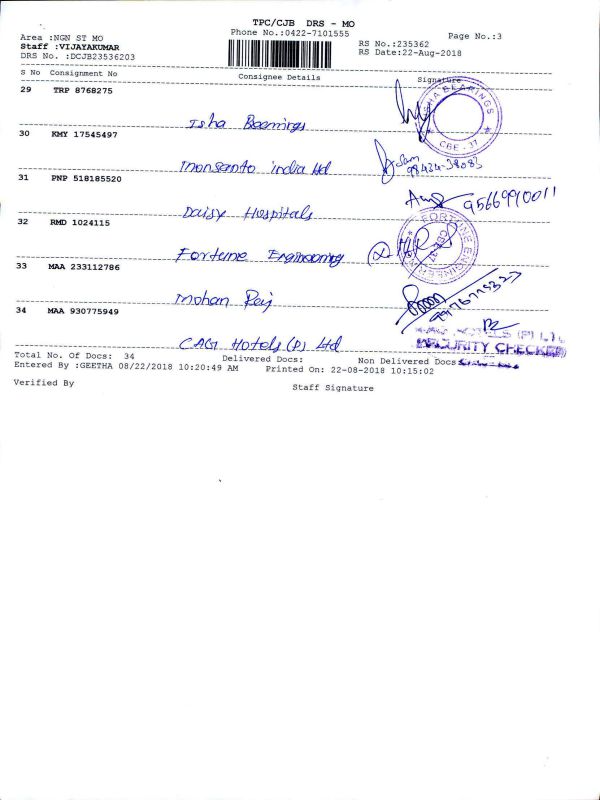 TPC/CJB DRS - MO
Area :NGN ST MO
Phone No.:0422-7101555
Page No.:3
Staff :VIJAYAKUMAR
RS No.:235362
DRS No. :DCJB23536203
RS Date:22-Aug-2018
S No Consignment No Consignee Details Signature
29 TRP 8768275
ISHA BEARINGS
CBE - 37
Isha Bearings
30 KMY 17545497
98434-38083
monsanto india ltd
31 PNP 518185520
9566990011
Daisy Hospitals
32 RMD 1024115
FORTUNE ENGINEERING
Fortune Engineering
33 MAA 233112786
mohan Raj
34 MAA 930775949
HOTELS (P) LTD
SECURITY CHECKED
CAG Hotels (P) Ltd
Total No. Of Docs: 34 Delivered Docs: Non Delivered Docs:
Entered By :GEETHA 08/22/2018 10:20:49 AM Printed On: 22-08-2018 10:15:02
Verified By Staff Signature